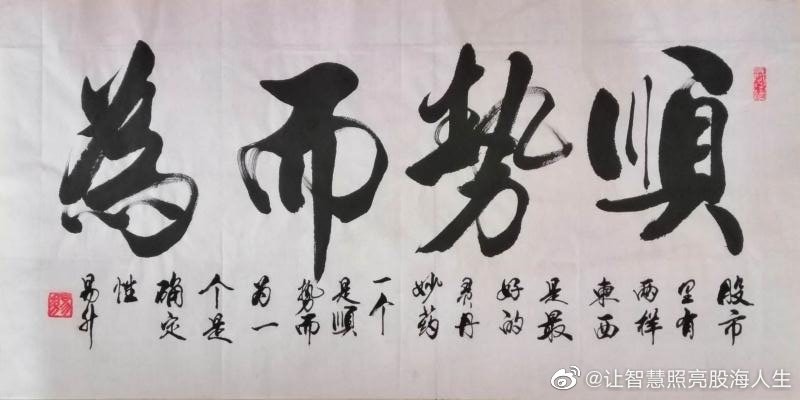 順勢而為
股市
里有
两样
東西
是最
好的
灵丹
妙药
一个
是順
势而
为一
个是
确定
性
易升
@让智慧照亮股海人生